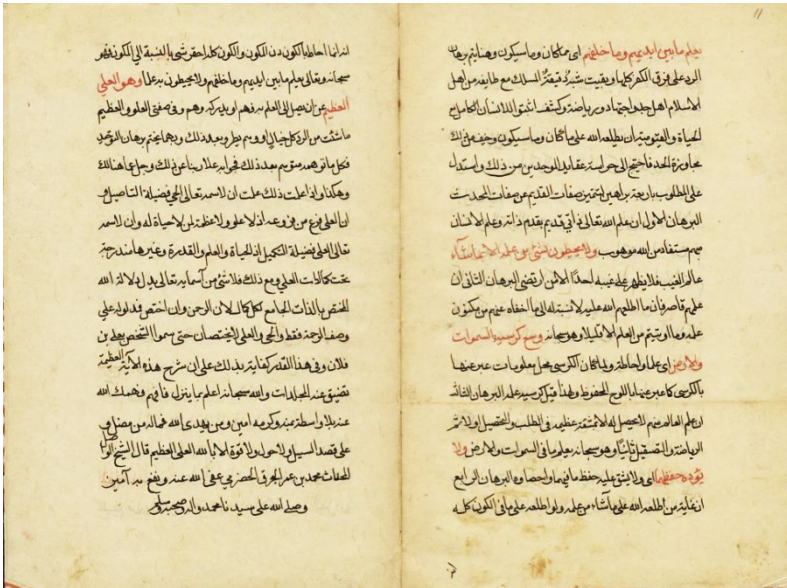 يعلم ما بين ايديهم وما خلفهم اي ما كان وما سيكون وهنا يتم برهان
الرد على فرق الكفر كلها وبقيت شبهة دقيقة لتلك مع طايفة من اهل
الاسلام اهل جد واجتهاد ورياضة وكشف اثبتوا للانسان الكامل مع
الحياة والقيومية ان يطلعه الله على ما كان وما سيكون وخيف من ذلك
مجاوزة الحد فاحتيج الى حراسة عقايد الموحدين من ذلك واستدل
على المطلوب باربعة براهين لتتميز صفات القديم عن صفات المحدث
البرهان الاول ان علم الله تعالى ذاتي قديم بقدم ذاته وعلم الانسان
منهم مستفاد من الله موهوب ولا يحيطون بشئ من علمه الا بما شاء
عالم الغيب فلا يظهر على غيبه احدًا الا من ارتضى البرهان الثاني ان
علمهم قاصر فان ما اطلعهم الله عليه لا نسبة له الى ما اخفاه عنهم من مكنون
علمه وما اوتيتم من العلم الا قليلا وهو سبحانه وسع كرسيه السموات
والارض اي علما واحاطة ولما كان الكرسي محل معلومات عبر عنها
بالكرسي كما عبر عنها باللوح المحفوظ ولهذا قيل كرسيه علمه البرهان الثالث
ان علم العالم منهم لا يحصل له الا بمشقة عظيمة في الطلب والتحصيل اولا ثم
الرياضة والتصقيل ثانيًا وهو سبحانه يعلم ما في السموات والارض ولا
يؤده حفظهما اي ولا يشق عليه حفظ ما فيهما واحصاوه البرهان الرابع
ان غاية من اطلعه الله على ما شاء من علمه ولو اطلعه على ما في الكون كله
انه انما احاط بالكون دون المكون والكون كله احقر شي بالنسبة الى المكون فهو
سبحانه وتعالى يعلم ما بين ايديهم وما خلفهم ولا يحيطون به علما وهو العلي
العظيم عن ان يصل الى العلم به فهم او يدركه وهم وفي صفتي العلو والعظيم
ما شئت من الرد كل خيال او وهم يطرء بعد ذلك وبهما يختم برهان التوحيد
فكل ما توهمه متوهم بعد ذلك فجوابه علا ربنا عن ذلك وجل عما هنالك
وهكذا واذا علمت ذلك علمت ان لاسمه تعالى الحي فضيلة التاصيل و
ان العلي فرع من فروعه اذ لا علو ولا عظمة لمن لا حياة له وان لاسمه
تعالى العلي فضيلة التكميل اذ الحياة والعلم والقدرة وغيرها مندرجة
تحت كمالات العلي ومع ذلك فلا شئ من اسمايه تعالى يدل دلالة الله
المختص بالذات الجامع لكل كمال لان الرحمن وان اختص فمدلوله على
وصف الرحمة فقط والحي والعلي لا يختصان حتى سموا الشخص بعلي بن
فلان وفي هذا القدر كفاية بذلك على ان شرح هذه الآية العظيمة
تضيق عنه المجلدات والله سبحانه اعلم بما ينزل فافهم وفهمك الله
عنه بلا واسطة بمنه وكرمه امين ومن يهدى الله فما له من مضل و
على قصد السبيل ولا حول ولا قوة الا بالله العلي العظيم قال الشيخ
محمد بن عمر الحضرمي عفى الله عنه ونفع به آمين
وصلى الله على سيدنا محمد واله وصحبه وسلم